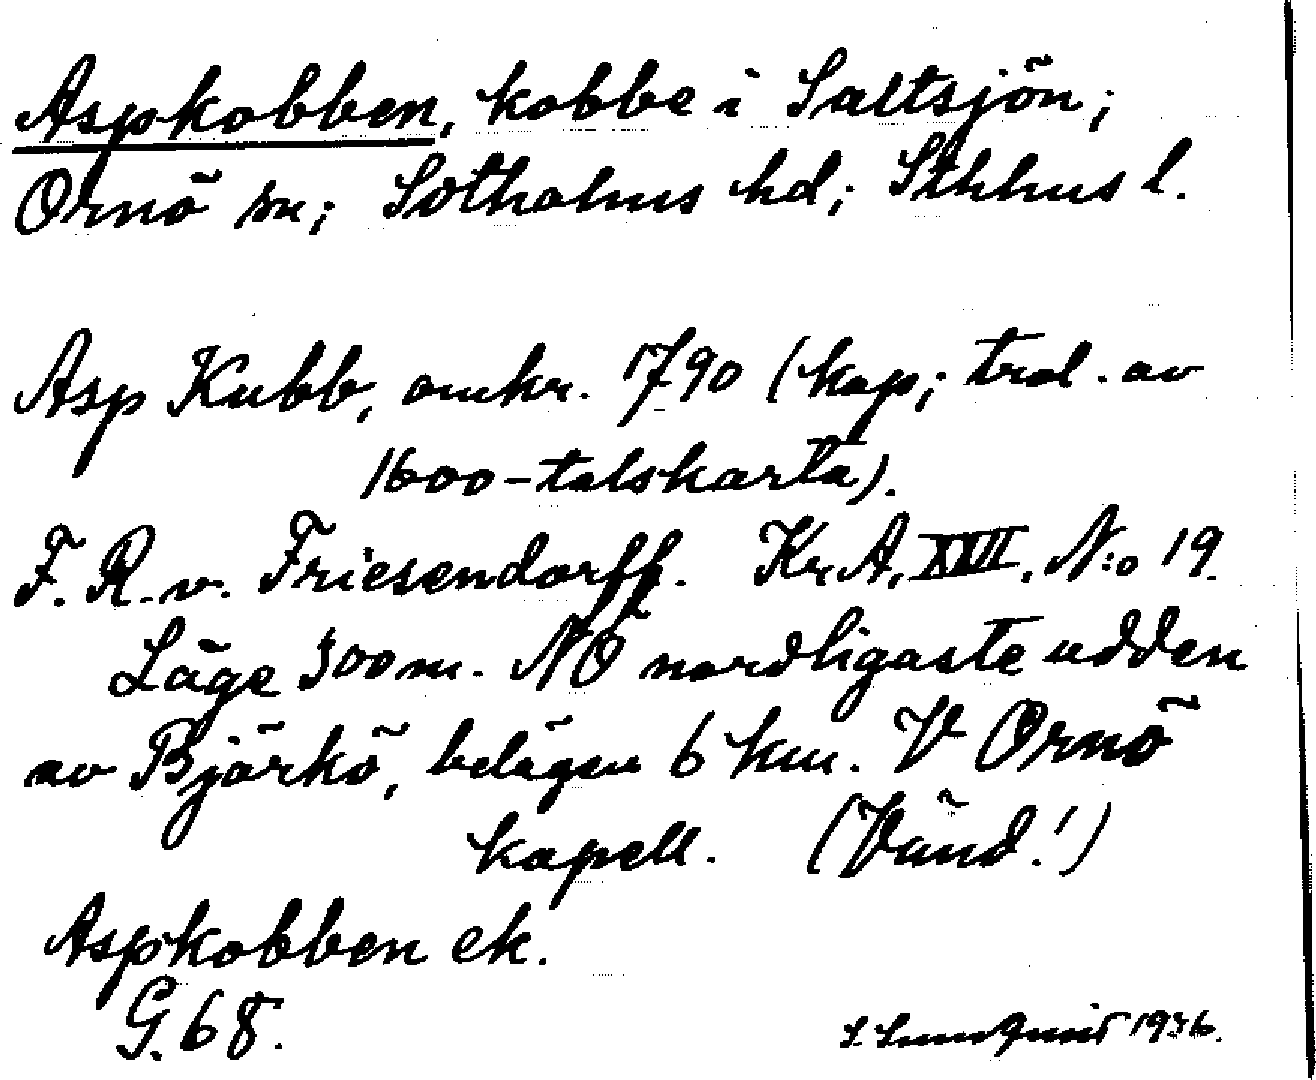 Aspkobben, kobbe i Saltsjön;
Ornö sn; Sotholms hd; Sthlms l.
Asp Kubb, omkr. 1790 (kop; trol. av
1600-talskarta).
F. R. v. Friesendorff. Kr.A. XVII. N:o 19.
Läge 300 m. NÖ nordligaste udden
av Björkö, belägen 6 km. V Ornö
kapell. (Vänd!)
Aspkobben ek.
G. 68.
S. Lundquist 1936.